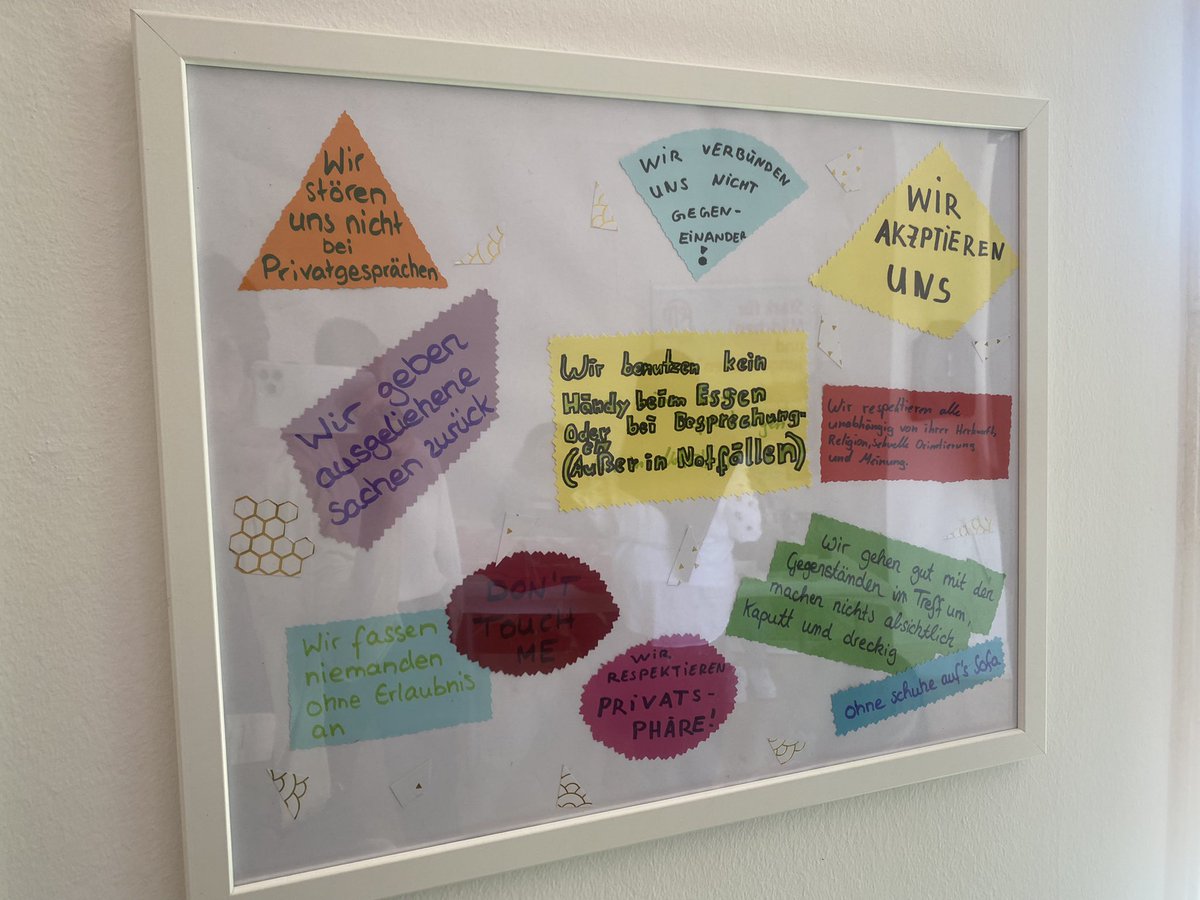 Wir
stören
uns nicht
bei
Privatgesprächen
WIR VERBÜNDEN
UNS NICHT
GEGEN-
EINANDER
!
WIR
AKZPTIEREN
UNS
Wir geben
ausgeliehene
sachen zurück
Wir benutzen kein
Händy beim Essen
Oder bei Besprechung-
en
(Außer in Notfällen)
Wir respektieren alle
unabhängig von ihrer Herkunft,
Religion, Orientierung
und Meinung.
DON'T
TOUCH
ME
Wir gehen gut mit den
Gegenständen im Treff um,
machen nichts absichtlich
Kaputt und dreckig
ohne schuhe auf's Sofa
Wir fassen
niemanden
ohne Erlaubnis
an
WIR
RESPEKTIEREN
PRIVATS-
PHÄRE!